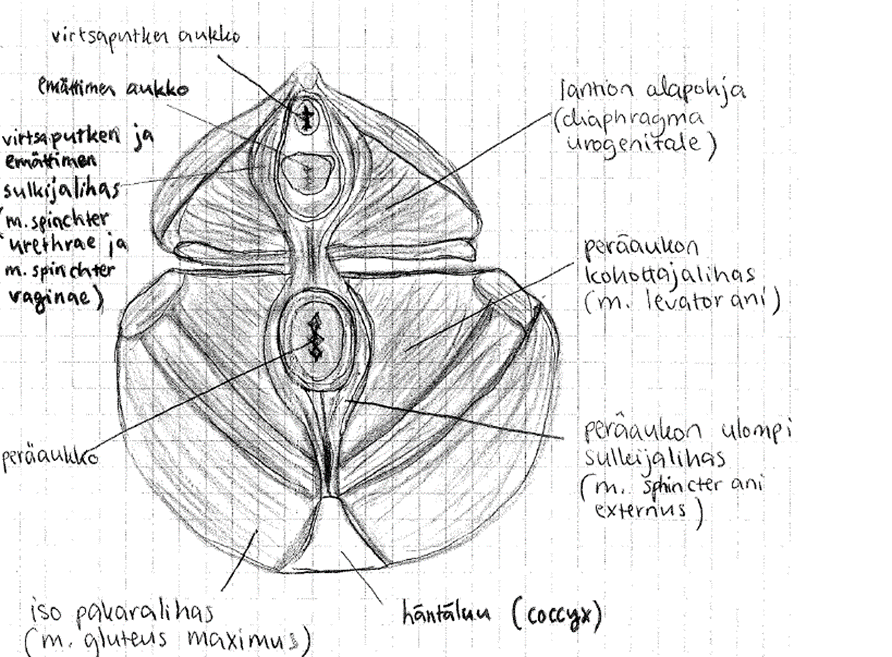 virtsaputken aukko
emättimen aukko
virtsaputken ja
emättimen
sulkijalihas
(m. spinchter
urethrae ja
m. spinchter
vaginae)
peräaukko
iso pakaralihas
(m. gluteus maximus)
häntäluu (coccyx)
lantion alapohja
(diaphragma
urogenitale)
peräaukon
kohottajalihas
(m. levator ani)
peräaukon ulompi
sulkijalihas
(m. sphincter ani
externus)